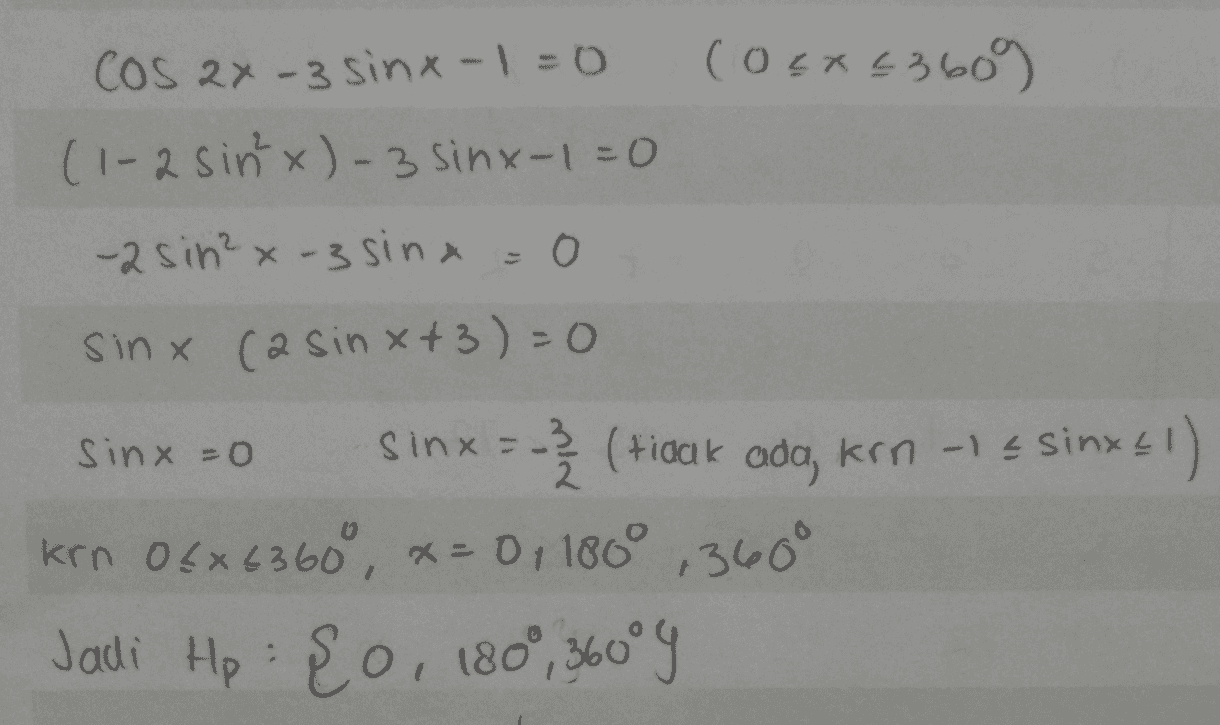 cos 2x - 3 sin x - 1 = 0 (0 ≤ x ≤ 360°)
(1 - 2 sin² x) - 3 sin x - 1 = 0
-2 sin² x - 3 sin x = 0
sin x (2 sin x + 3) = 0
sin x = 0 sin x = -3/2 (tidak ada, krn -1 ≤ sin x ≤ 1)
krn 0 ≤ x ≤ 360°, x = 0, 180°, 360°
Jadi Hp : {0, 180°, 360°}